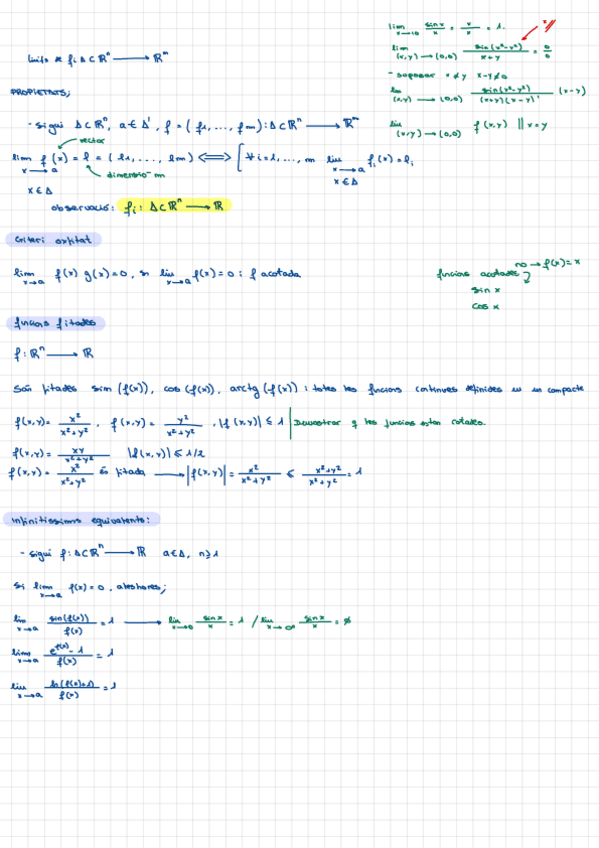 lim x→0 sin x / x = x / x = 1.
lim (x,y)→(0,0) sin(x²-y²) / x+y = 0/0
- suposar x≠y x-y≠0
lim (x,y)→(0,0) sin(x²-y²) / (x+y)(x-y) · (x-y)
lim (x,y)→(0,0) f(x,y) || x=y
límits de f: Δ⊂ℝⁿ → ℝᵐ
PROPIETATS;
- Sigui Δ⊂ℝⁿ, a∈Δ', f=(f₁,..., fm): Δ⊂ℝⁿ → ℝᵐ
vector
lim x→a x∈Δ f(x) = l = (l₁,..., lm) ⟺ [ ∀i=1,..., m lim x→a x∈Δ fᵢ(x)=lᵢ
dimensió m
observació: fᵢ: Δ⊂ℝⁿ → ℝ
Criteri acotat
no → f(x)=x
lim x→a f(x) g(x)=0, si lim x→a f(x)=0 i f acotada
funcions acotades
sin x
cos x
funcions fitades
f: ℝⁿ → ℝ
Són fitades sin(f(x)), cos(f(x)), arctg(f(x)) i totes les funcions contínues definides en un compacte
f(x,y)= x² / x²+y² , f(x,y)= y² / x²+y² , |f(x,y)| ≤ 1 | Demostrar q les funcions estan cotades.
f(x,y)= xy / x²+y² |f(x,y)| ≤ 1/2
f(x,y)= x² / x²+y² és fitada → |f(x,y)| = x² / x²+y² ≤ x²+y² / x²+y² = 1
Infinitèssims equivalents:
- sigui f: Δ⊂ℝⁿ → ℝ a∈Δ, n≥1
Si lim x→a f(x)=0, aleshores;
lim x→a sin(f(x)) / f(x) = 1 → lim x→0 sin x / x = 1 / lim x→∞ sin x / x = 0
lim x→a e^f(x) - 1 / f(x) = 1
lim x→a ln(f(x)+1) / f(x) = 1